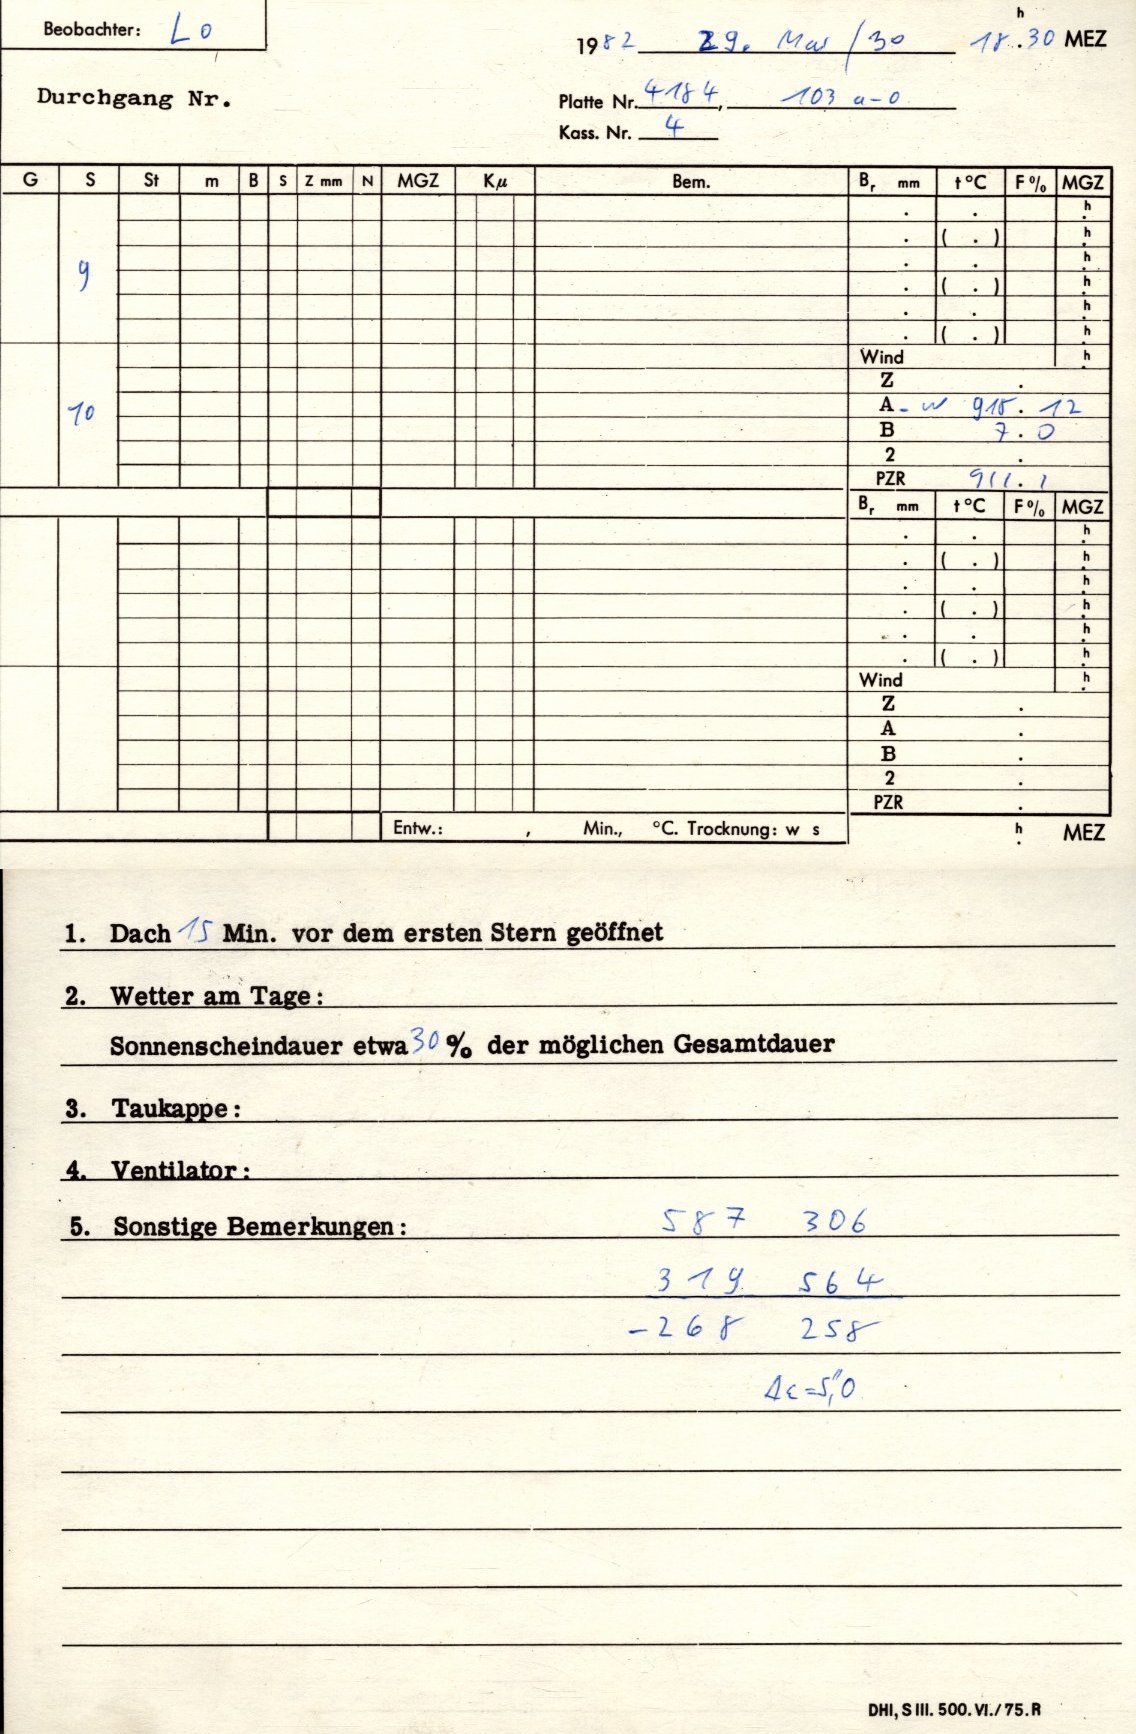 Beobachter: Lo
1982 29. Mar/30 18h.30 MEZ
Durchgang Nr.
Platte Nr. 4184, 103 a-0
Kass. Nr. 4
G S St m B S Z mm N MGZ Kμ Bem. Br mm t°C F% MGZ
. . h
. ( . ) h
9 . . h
. ( . ) h
. . h
. ( . ) h
Wind h
Z .
10 A - w 918. 12
B 7.0
2 .
PZR
Br mm t°C F% MGZ
. . h
. ( . ) h
. . h
. ( . ) h
. . h
. ( . ) h
Wind h
Z .
A .
B .
2 .
PZR .
Entw.: , Min., °C. Trocknung: w s h. MEZ
1. Dach 15 Min. vor dem ersten Stern geöffnet
2. Wetter am Tage:
Sonnenscheindauer etwa 30 % der möglichen Gesamtdauer
3. Taukappe:
4. Ventilator:
5. Sonstige Bemerkungen: 587 306
319 564
-268 258
Δε=5,"0
DHI, S III. 500. VI./75. R